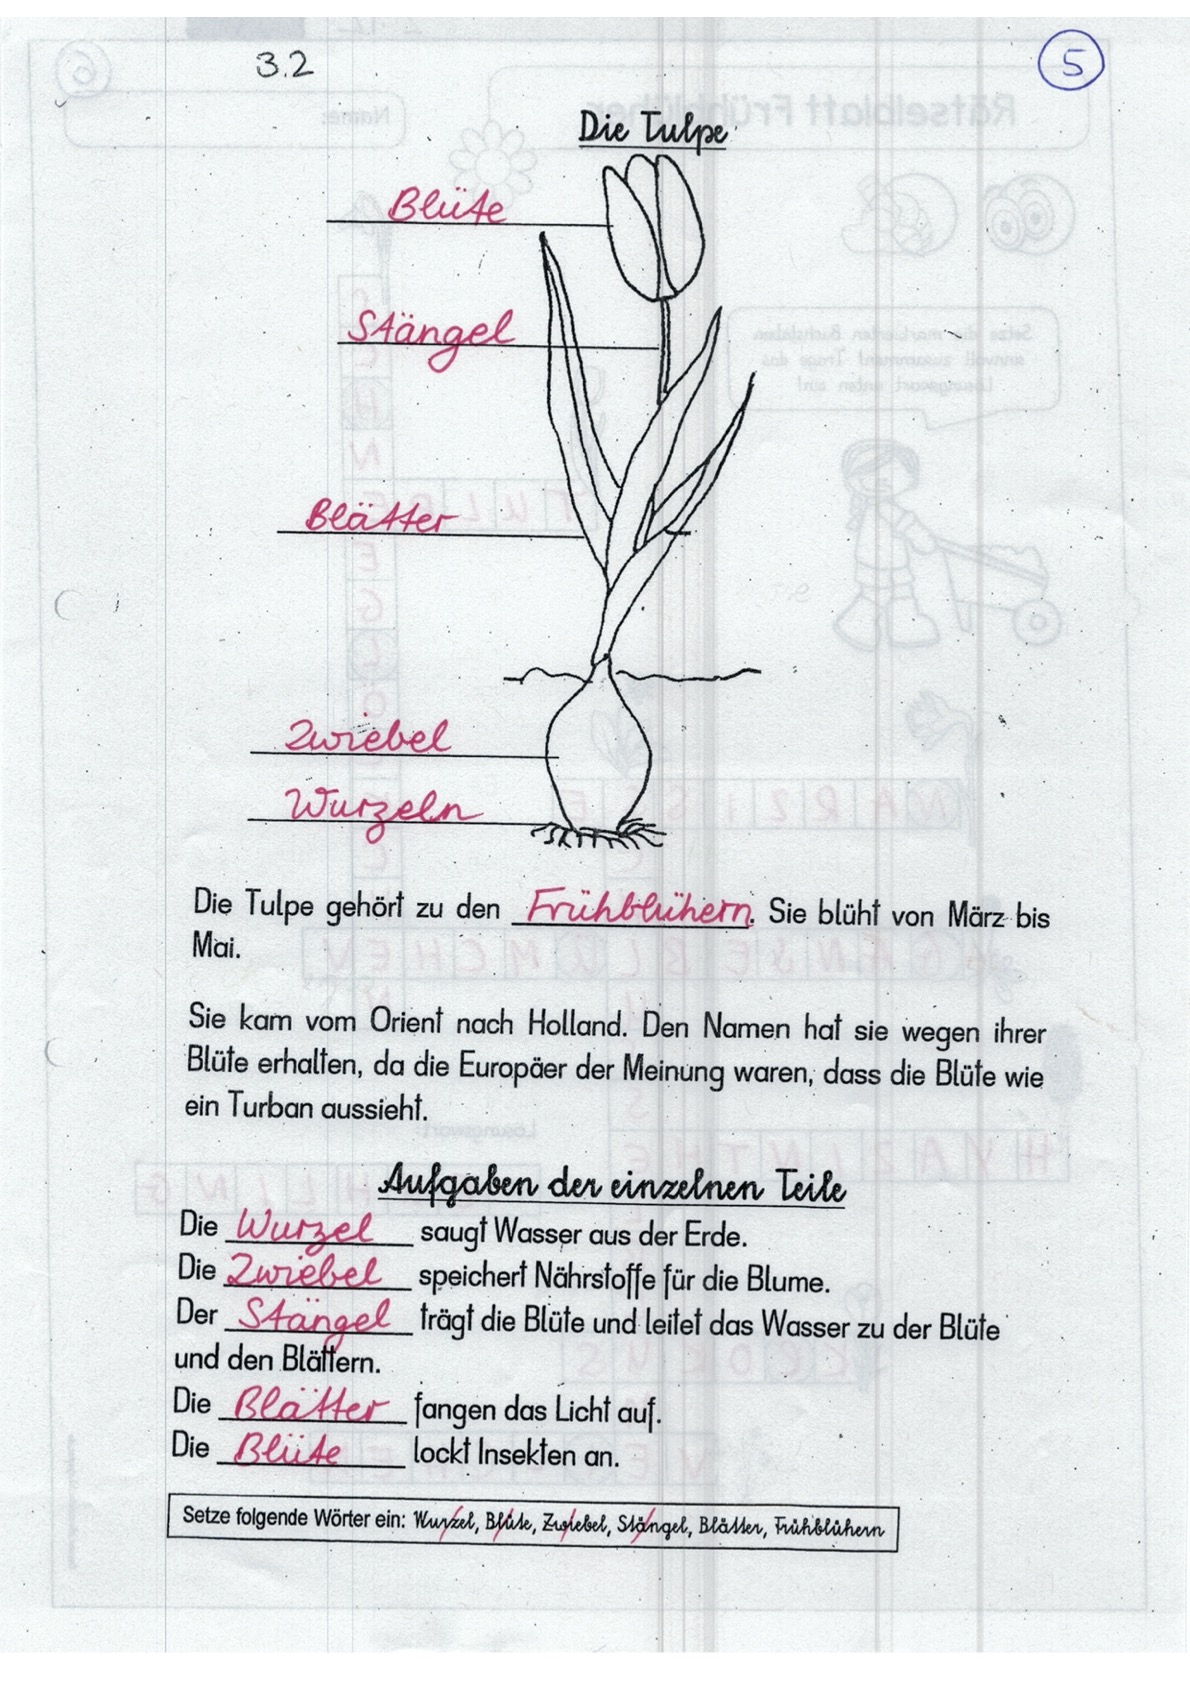 3.2
5
Die Tulpe
Blüte
Stängel
Blätter
Zwiebel
Wurzeln
Die Tulpe gehört zu den Frühblühern. Sie blüht von März bis
Mai.
Sie kam vom Orient nach Holland. Den Namen hat sie wegen ihrer
Blüte erhalten, da die Europäer der Meinung waren, dass die Blüte wie
ein Turban aussieht.
Aufgaben der einzelnen Teile
Die Wurzel saugt Wasser aus der Erde.
Die Zwiebel speichert Nährstoffe für die Blume.
Der Stängel trägt die Blüte und leitet das Wasser zu der Blüte
und den Blättern.
Die Blätter fangen das Licht auf.
Die Blüte lockt Insekten an.
Setze folgende Wörter ein: Wurzel, Blüte, Zwiebel, Stängel, Blätter, Frühblühern